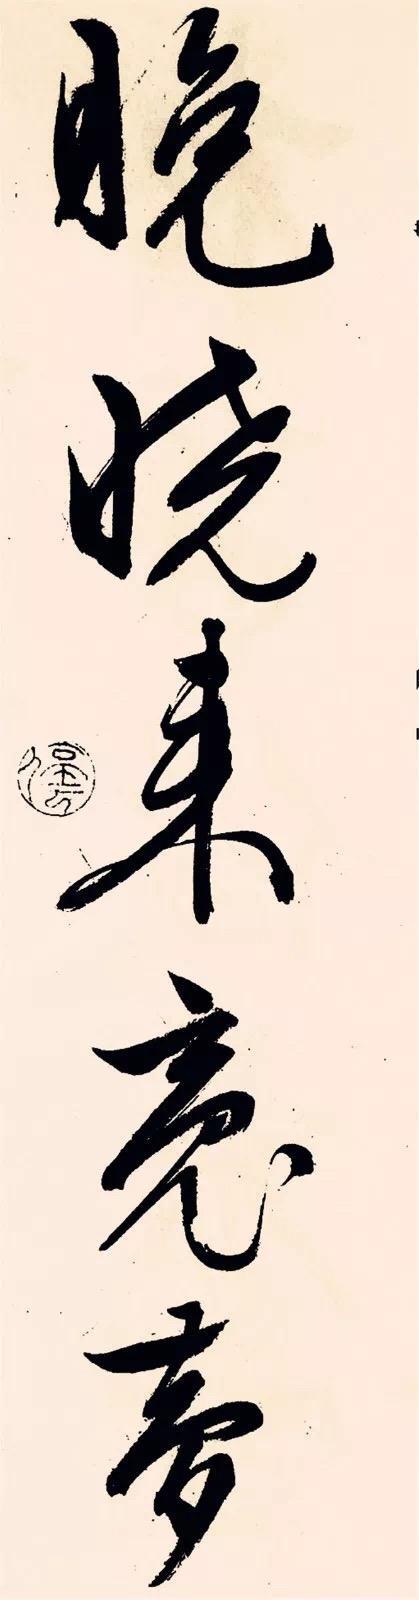 晚晓来亮梦